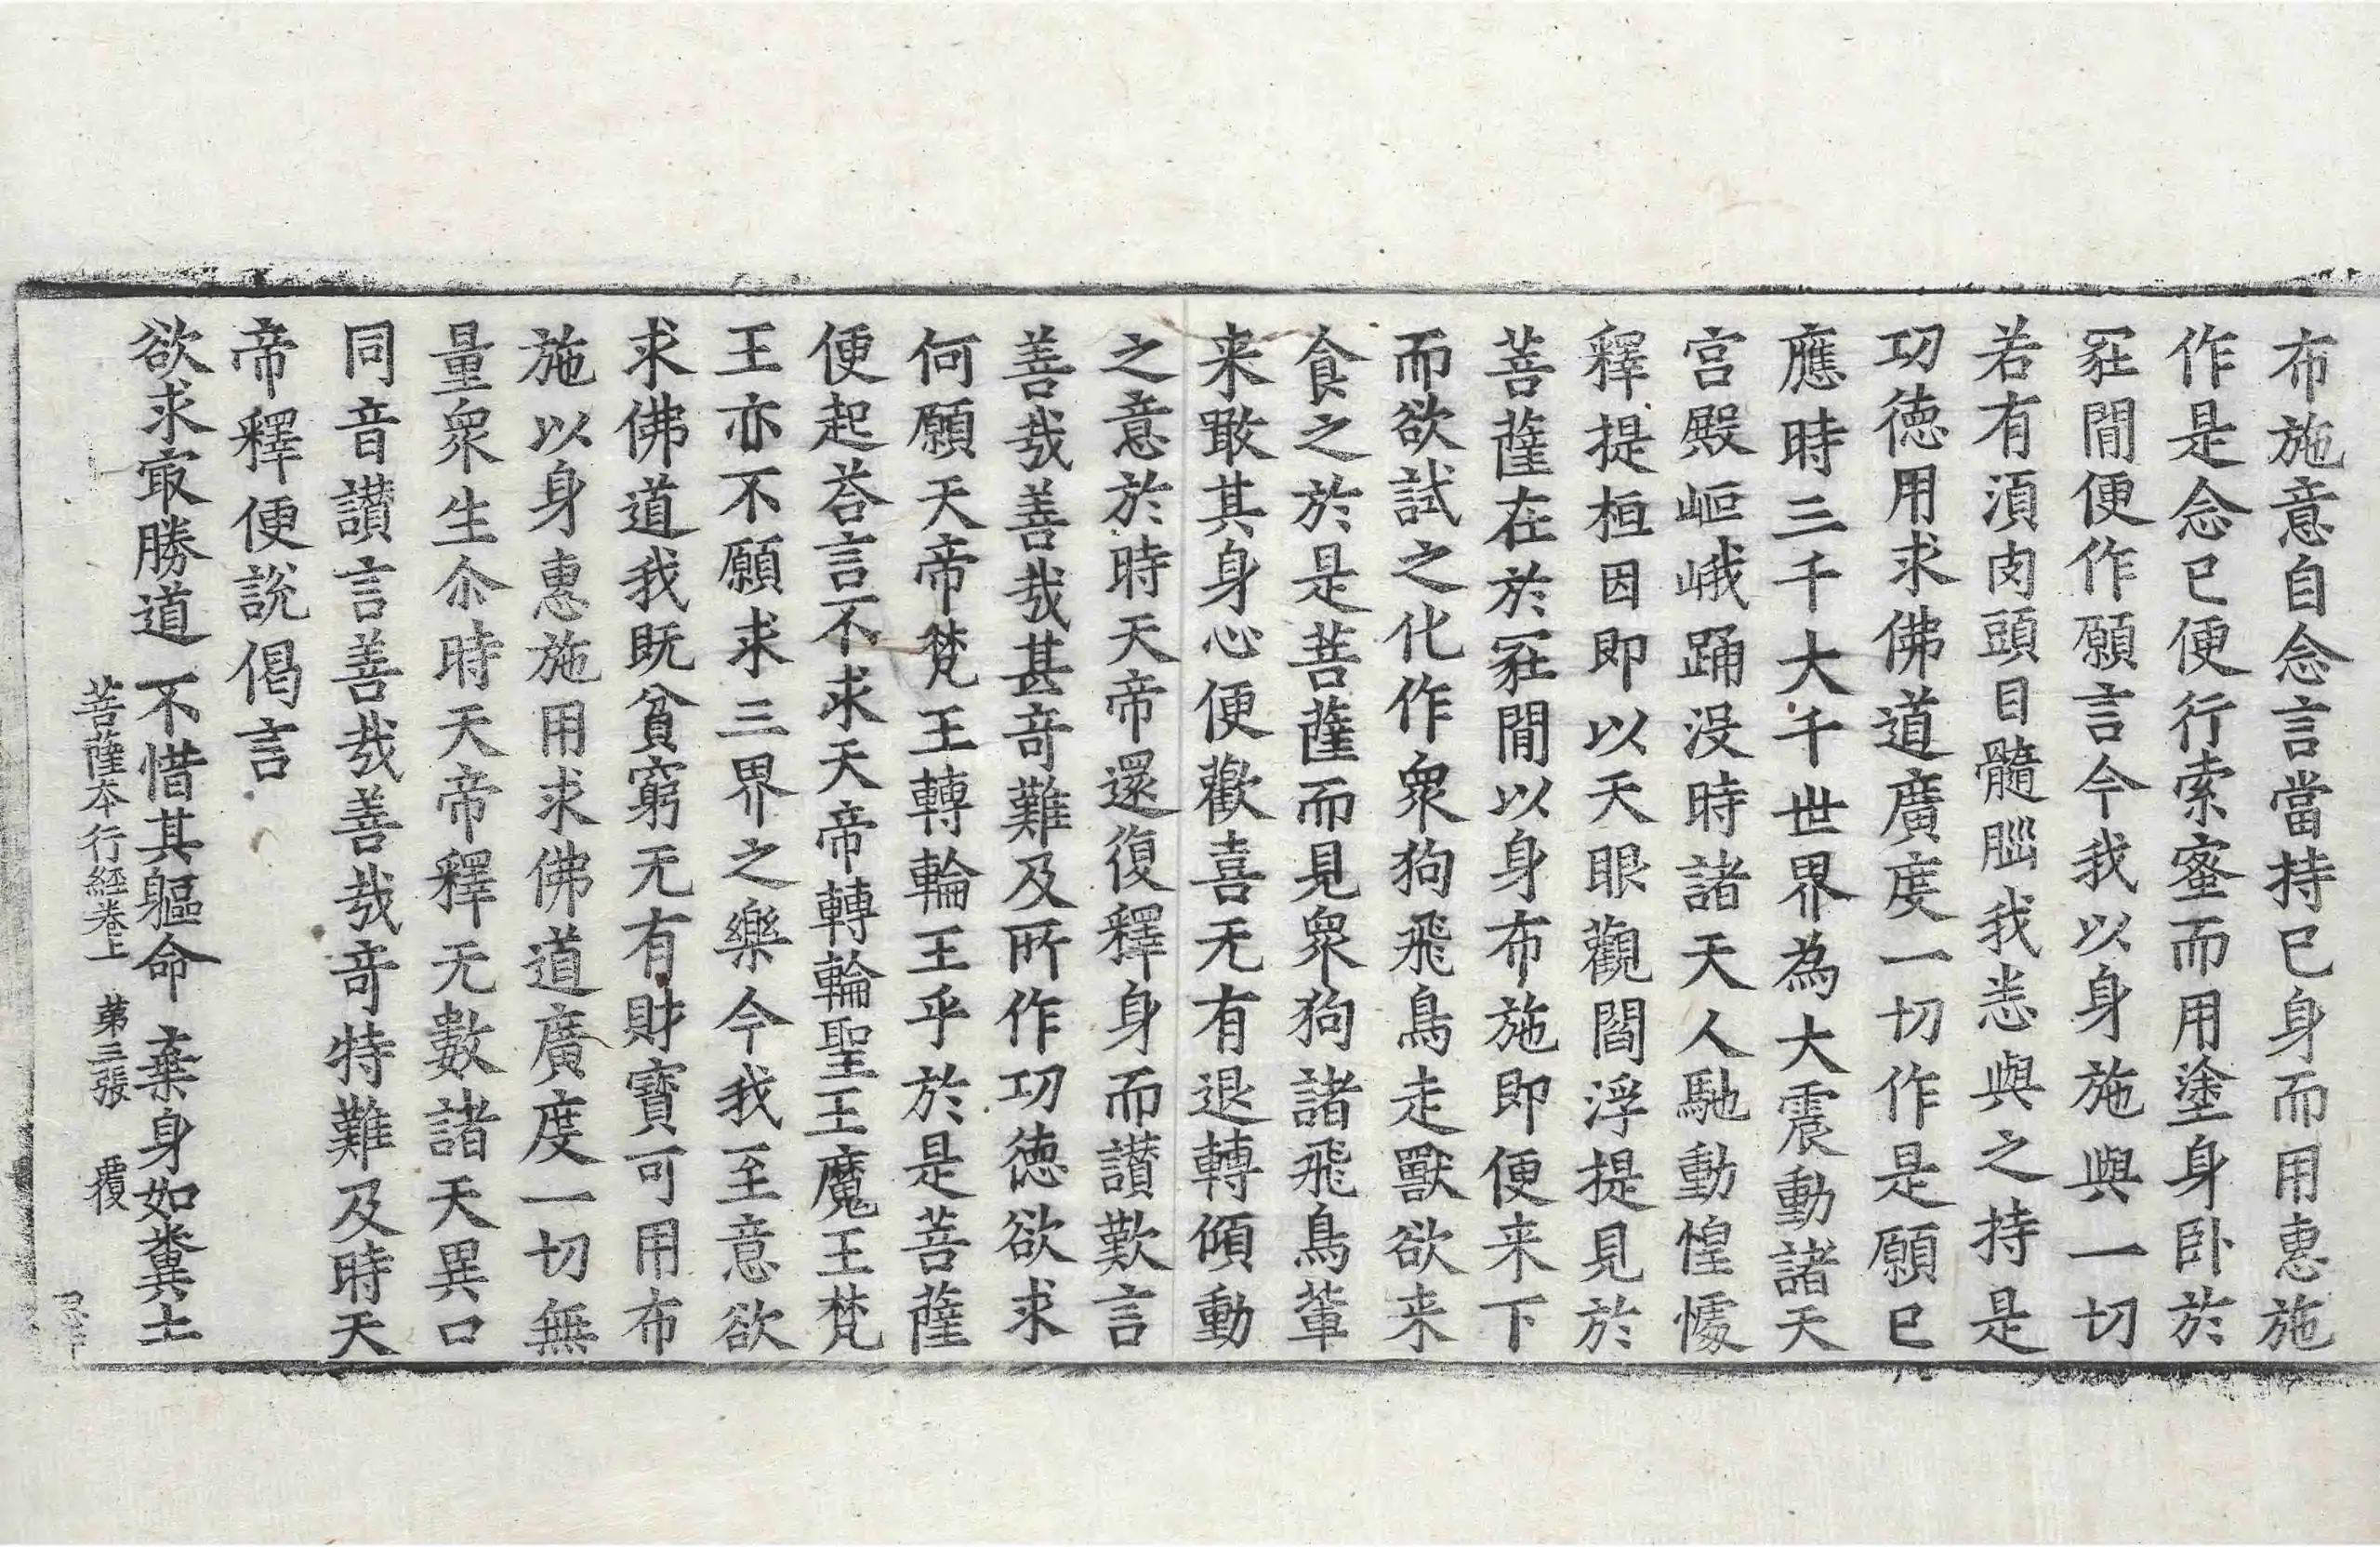 布施意自念言當持已身而用惠施
作是念已便行索蜜而用塗身卧於
冢間便作願言今我以身施與一切
若有湏肉頭目髓𦛁我悉與之持是
功德用求佛道廣度一切作是願已
應時三千大千世界為大震動諸天
宫殿岠峨踊没時諸天人馳動惶懅
釋提桓因即以天眼觀閻浮提見於
菩薩在於冢間以身布施即便来下
而欲試之化作衆狗飛鳥走獸欲来
食之於是菩薩而見衆狗諸飛鳥軰
来噉其身心便歡喜无有退轉傾動
之意於時天帝還復釋身而讃歎言
善㢤善㢤甚竒難及所作功德欲求
何願天帝梵王轉輪王乎於是菩薩
便起荅言不求天帝轉輪聖王魔王梵
王亦不願求三界之樂今我至意欲
求佛道我既貧窮无有財寶可用布
施以身惠施用求佛道廣度一切無
量衆生尒時天帝釋无數諸天異口
同音讃言善㢤善㢤竒特難及時天
帝釋便說偈言
欲求㝡勝道 不惜其軀命 棄身如糞土
菩薩本行經卷上 苐三張 覆